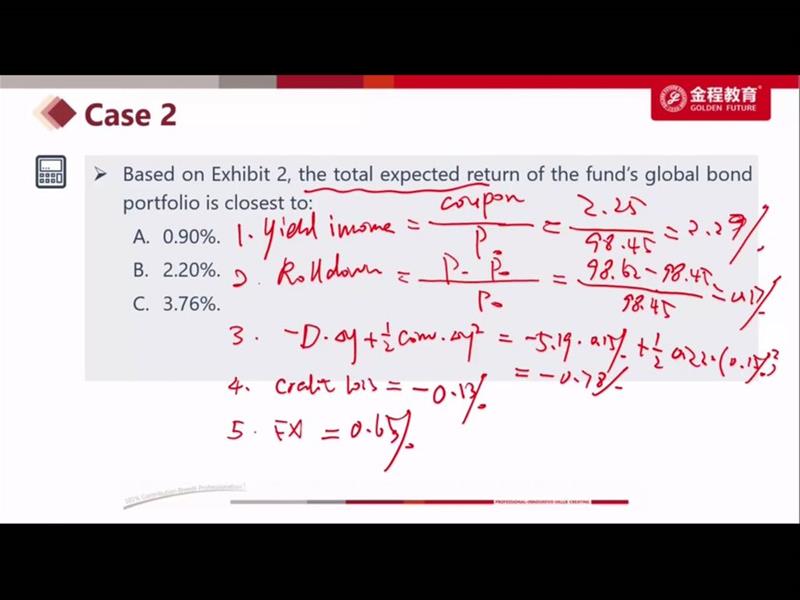 金程教育
GOLDEN FUTURE
Case 2
➢ Based on Exhibit 2, the total expected return of the fund's global bond
portfolio is closest to:
A. 0.90%.
B. 2.20%.
C. 3.76%.
1. Yield income = coupon / P₀ = 2.25 / 98.45 = 2.29%
2. Rolldown = P₁ - P₀ / P₀ = 98.62 - 98.45 / 98.45 = 0.17%
3. -D·Δy + ½ conv·Δy² = -5.19·0.15% + ½ 0.22·(0.15%)²
= -0.78%
4. credit loss = -0.13%
5. FX = 0.65%
PROFESSIONAL·INNOVATIVE·VALUE CREATING